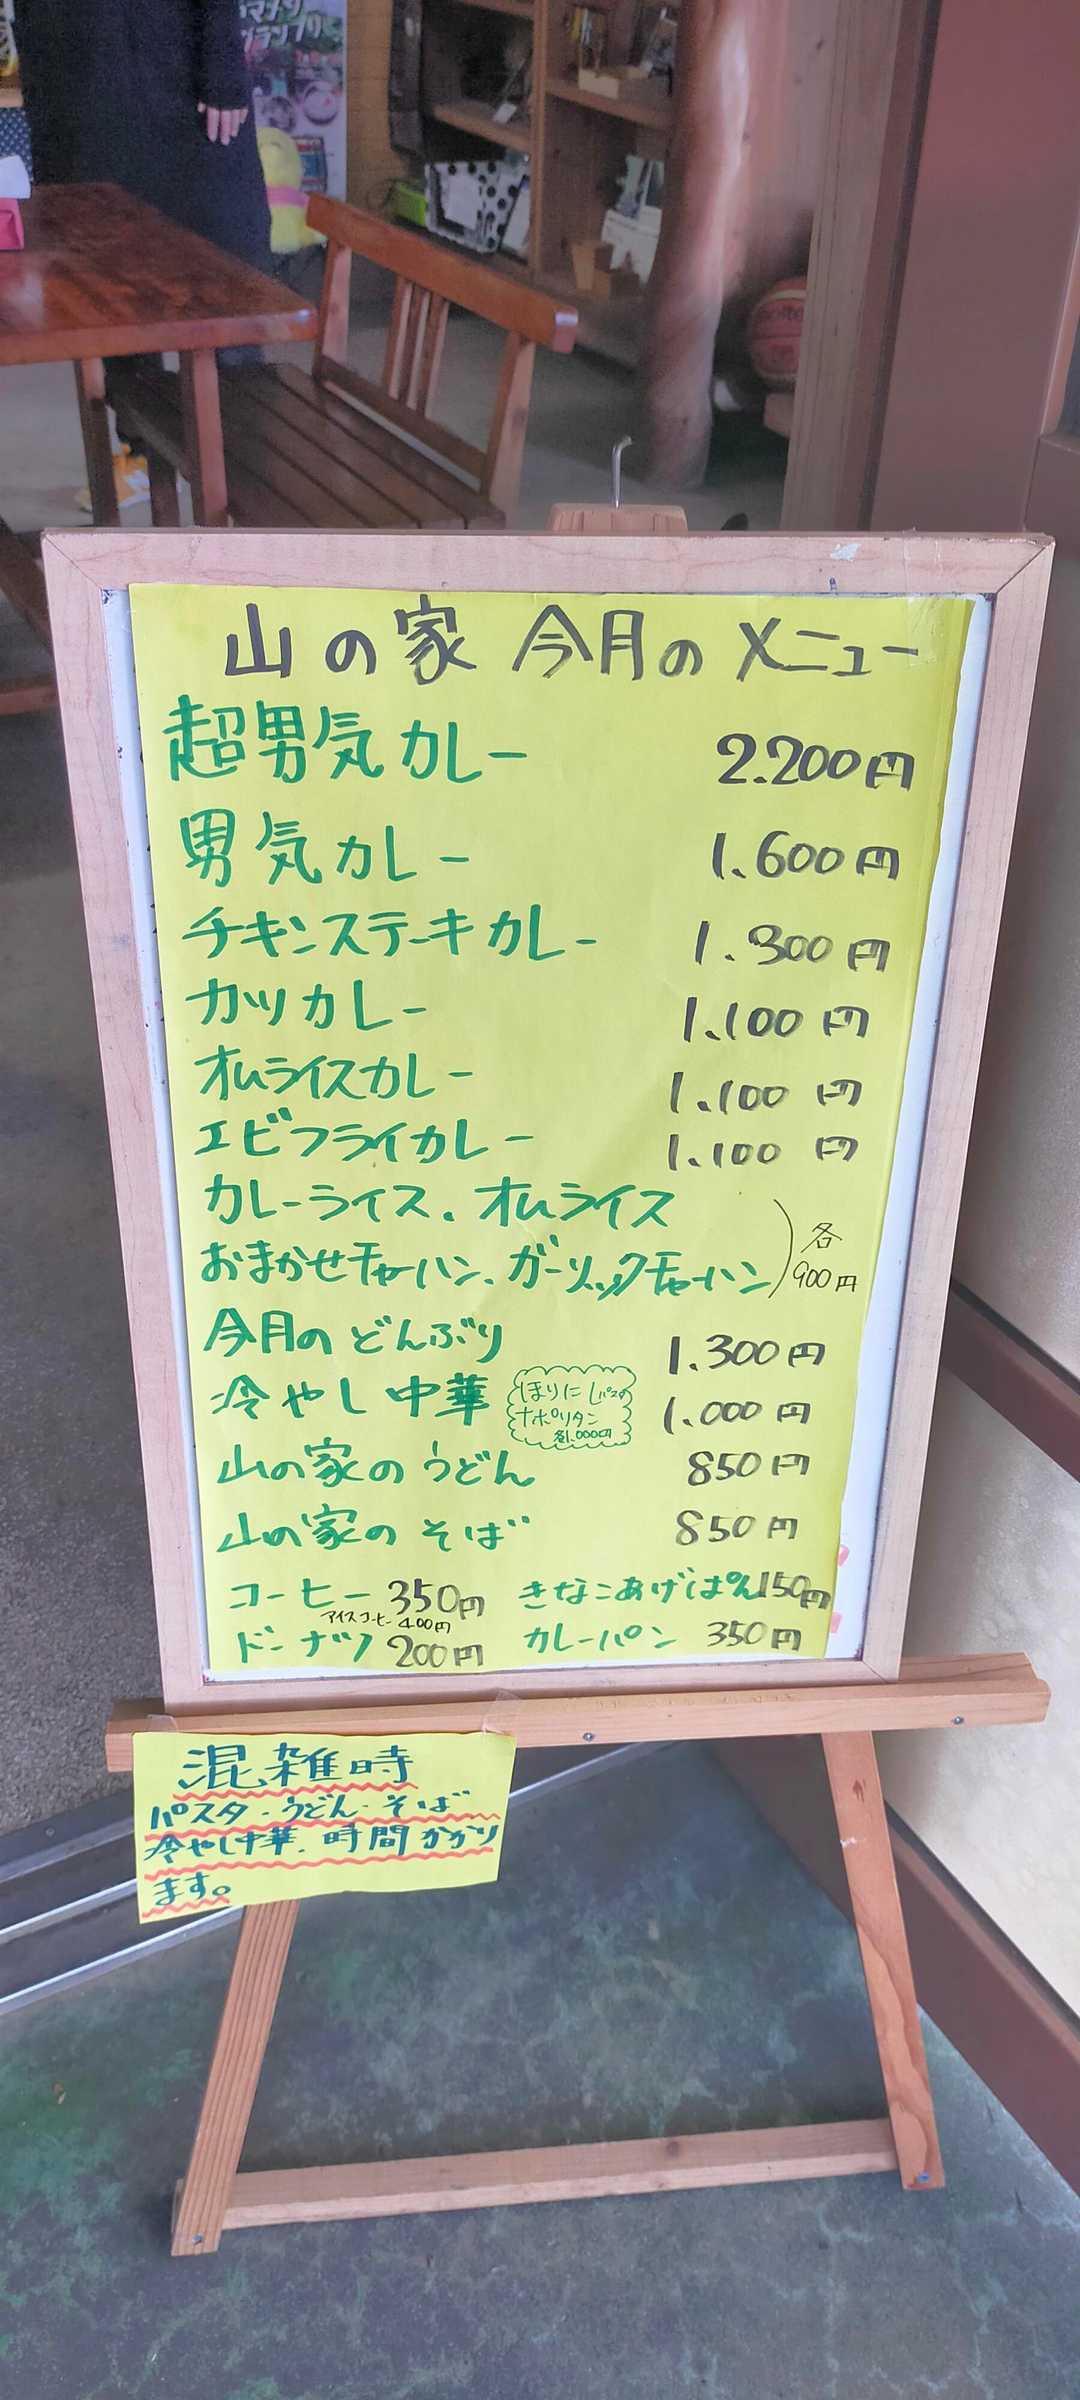 山の家 今月のメニュー
超男気カレー 2.200円
男気カレー 1.600円
チキンステーキカレー 1.300円
カツカレー 1.100円
オムライスカレー 1.100円
エビフライカレー 1.100円
カレーライス、オムライス
おまかせチャーハン、ガーリックチャーハン 各900円
今月のどんぶり 1.300円
冷やし中華 1.000円
ほりにしパスタ
ナポリタン
各1.000円
山の家のうどん 850円
山の家のそば 850円
コーヒー 350円 きなこあげぱん 150円
アイスコーヒー 400円
ドーナツ 200円 カレーパン 350円
混雑時
パスタ・うどん・そば
冷やし中華、時間かかり
ます。